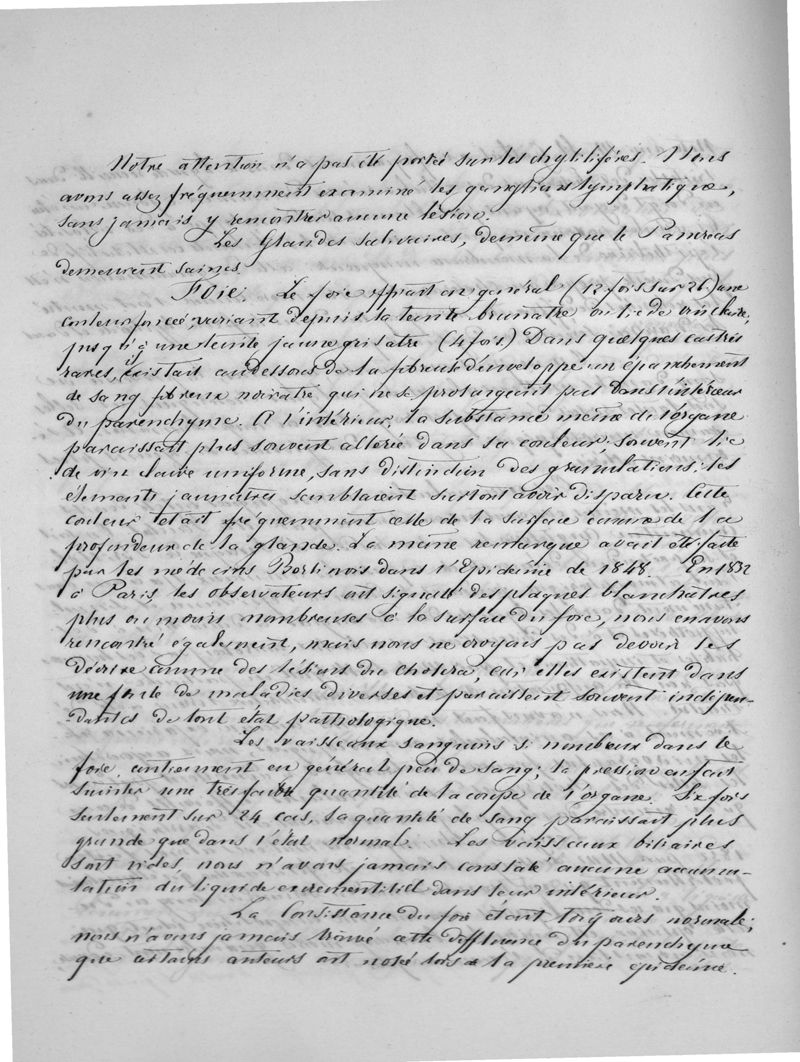 Notre attention n'a pas été portée sur les chylifères. Nous
avons assez fréquemment examiné les ganglions lymphatique,
sans jamais y rencontrer aucune lésion.
Les Glandes salivaires, de même que le Pancréas
demeurent saines
Foie. Le foie offrait en général (12 fois sur 26) une
couleur foncée; variant depuis la teinte brunâtre ou lie de vin claire,
jusqu'à une teinte jaune grisâtre (4 fois) Dans quelques cas très
rares, existait au dessous de la fibreuse d'enveloppe un épanchement
de sang fibreux noirâtre qui ne se prolongeait pas dans l'intérieur
du parenchyme. A l'intérieur, la substance même de l'organe
paraissait plus souvent altérée dans sa couleur; souvent lie
de vin claire uniforme, sans distinction des granulations; les
éléments jaunâtres semblaient surtout avoir disparu. Cette
couleur était fréquemment celle de la surface comme de la
profondeur de la glande. La même remarque avait été faite
par les médecins Berlinois dans l'Epidémie de 1848. En 1832
à Paris, les observateurs ont signalé des plaques blanchâtres
plus ou moins nombreuses à la surface du foie, nous en avons
rencontré également, mais nous ne croyons pas devoir les
décrire comme des lésions du choléra, car elles existent dans
une foule de maladies diverses et paraissent souvent indépen-
dantes de tout état pathologique.
Les vaisseaux sanguins si nombreux dans le
foie, contiennent en général peu de sang; la pression en fait
suinter une très faible quantité de la coupe de l'organe. Six fois
seulement sur 24 cas, la quantité de sang paraissait plus
grande que dans l'état normal. Les vaisseaux biliaires
sont vides, nous n'avons jamais constaté aucune accumu-
lation du liquide excrémentitiel dans leur intérieur.
La Consistance du foie étant toujours normale;
nous n'avons jamais trouvé cette diffluence du parenchyme
que certains auteurs ont notée lors de la première épidémie.